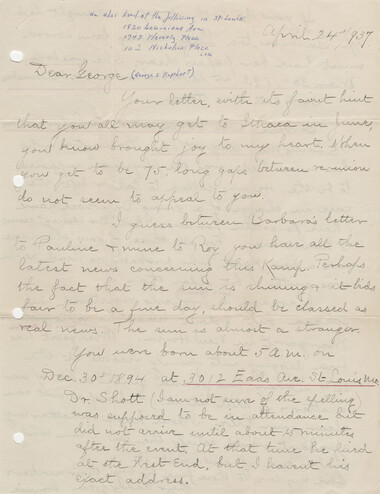 We also lived at the following in St. Louis
1820 Louisiana Ave
5948 Waverly Place
10 Nicholson Place
April 24th 1937
Dear George (George S. Raphael)
Your letter, with its faint hint
that you all may get to Ithaca in June,
you know brought joy to my heart. When
you get to be 75, long gaps between reunion
do not seem to appeal to you.
I guess between Barbara's letter
to Pauline & mine to Roy you have all the
latest news concerning this Kamp. Perhaps
the fact that the sun is shining & it bids
fair to be a fine day, should be classed as
real news. The sun is almost a stranger.
You were born about 5 A.M. on
Dec. 30th 1894 at 3012 Eads Ave. St. Louis Mo
Dr. Shott (I am not sure of the spelling)
was supposed to be in attendance but
did not arrive until about 15 minutes
after the event. At that time he lived
at the West End, but I haven't his
exact address.